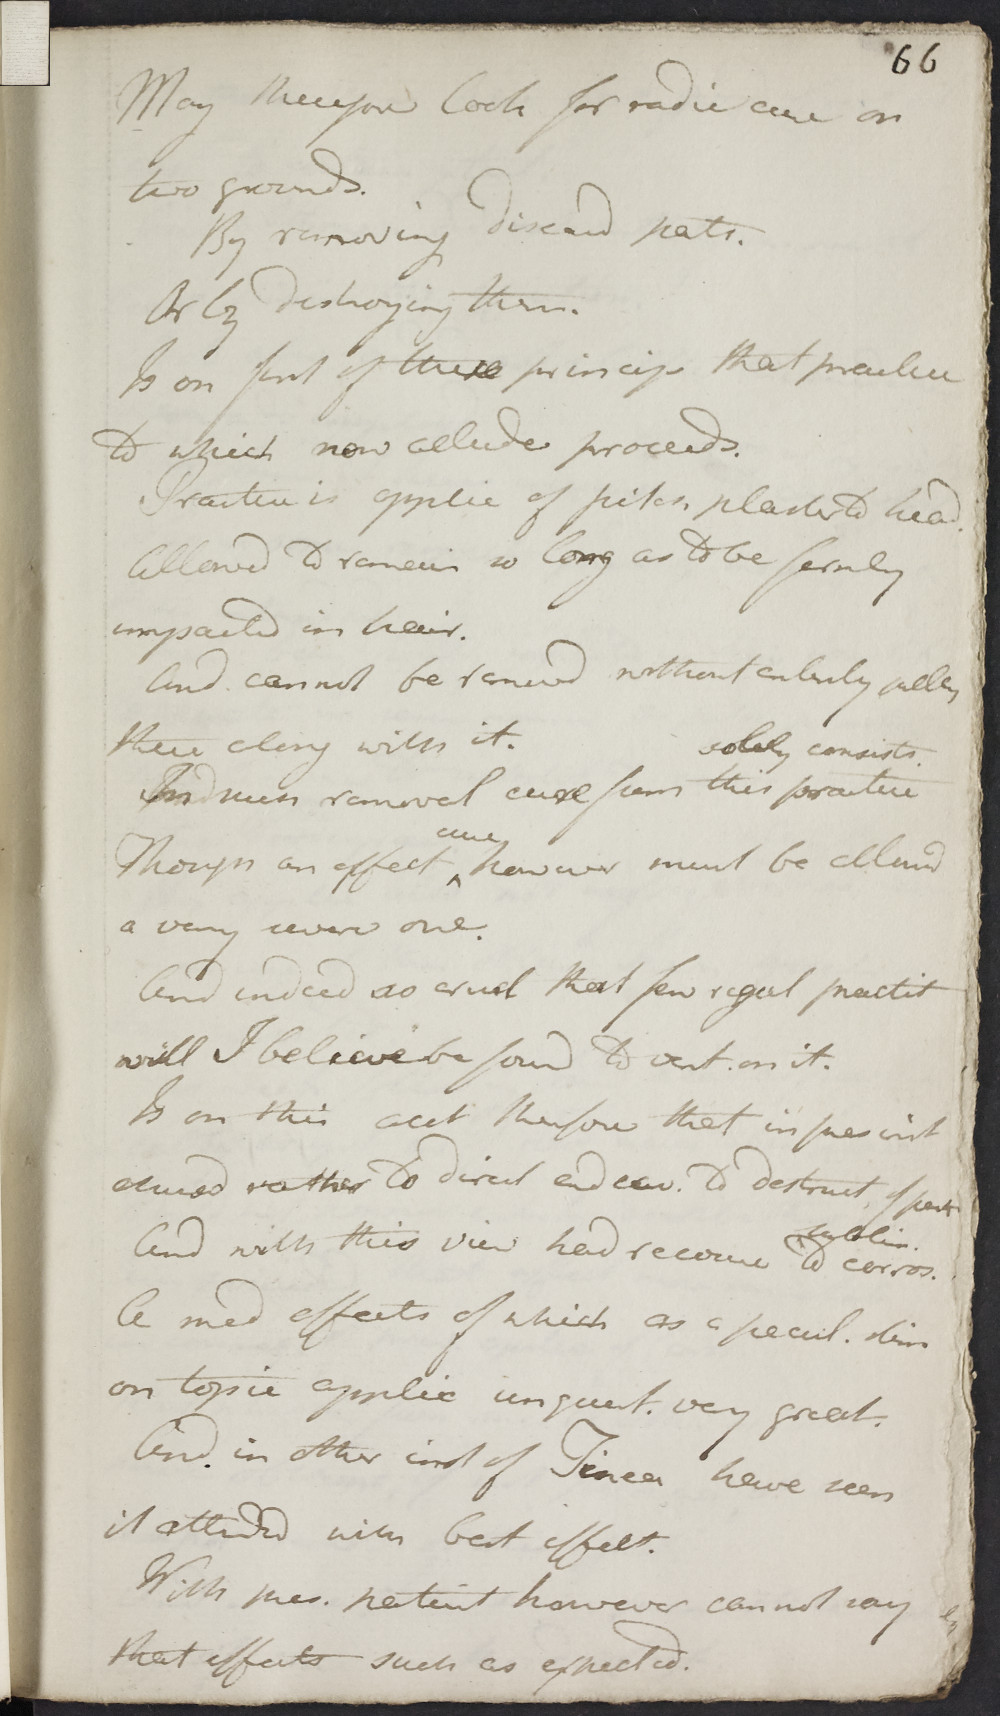 66
May therefore look for radic cure on
two grounds.
By removing diseasd parts.
Or by destroying them.
Is on first of these princip that practice
to which now allude proceeds.
Practice is applic of pitch plaster to head.
Allowed to remain so long as to be firmly
impacted in hair.
And cannot be removd without entirely pulling
these along with it.
solely consists.
In such removal cure from this practice
Though an effect cure however must be allowd
a very severe one.
And indeed so cruel that few regul practit
will I believe be found to vent. on it.
Is on this acct therefore that in pres inst
chused rather to direct endeav. to destruct of parts
And with this view had recourse to corros.
sublim.
A med effects of which as a pecul. stim
on topic applic unquest. very great.
And in other inst of Tinea have seen
it attended with best effect.
With pres. patient however cannot say
that effects such as expected.